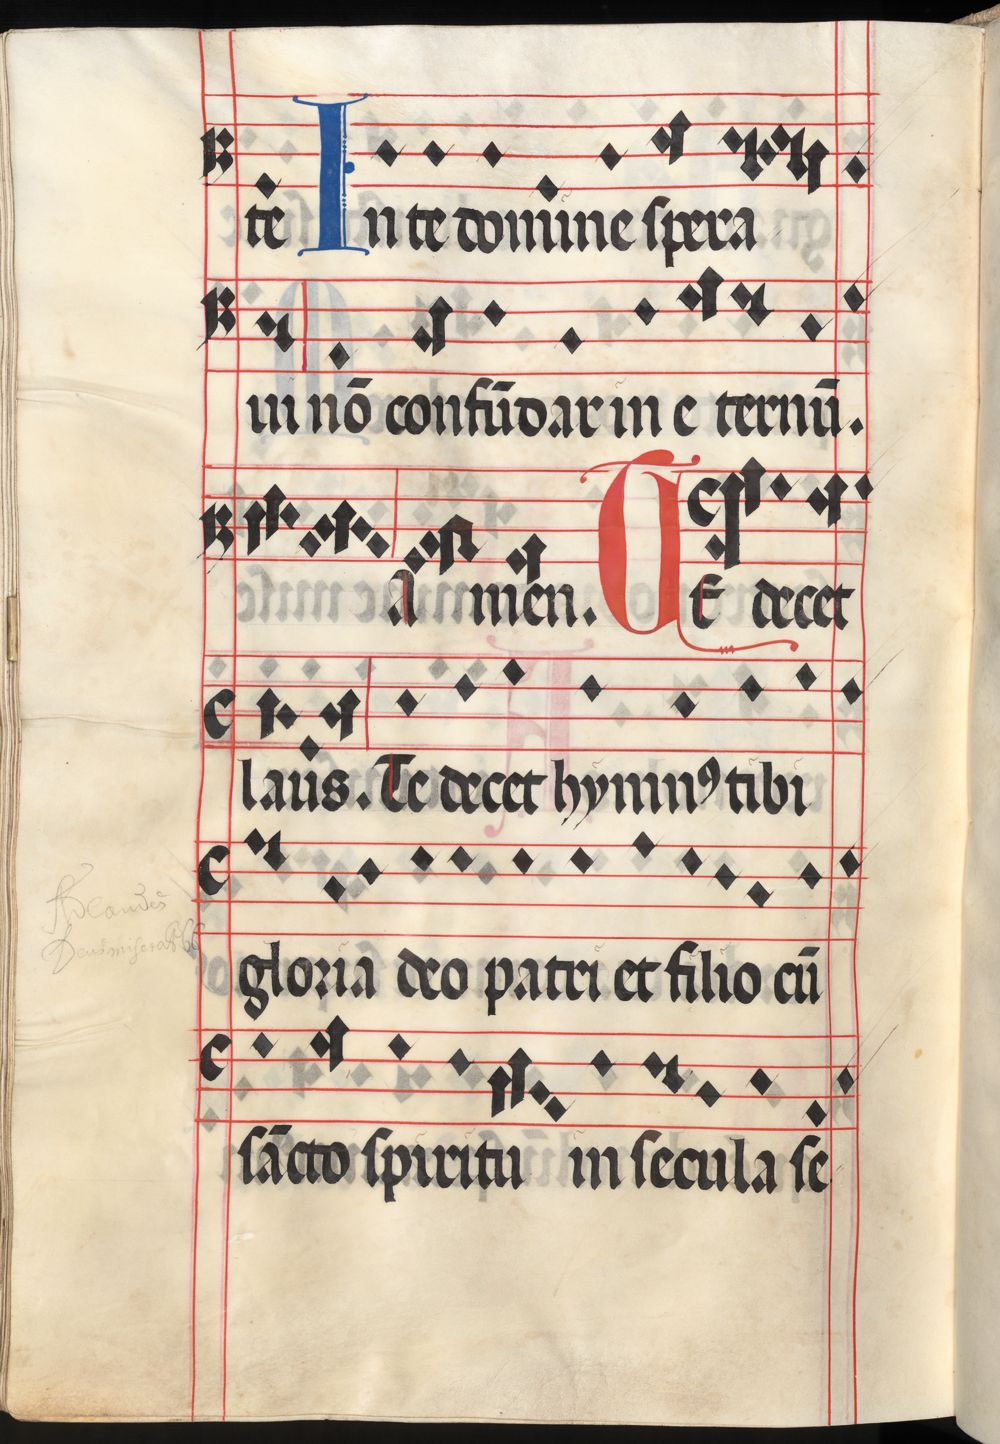 te In te domine spera
ui nō confūdar in e ternū.
A men. TE decet
laus. Te decet hymnꝰ tibi
gloria deo patri et filio cū
sācto spiritu in secula se